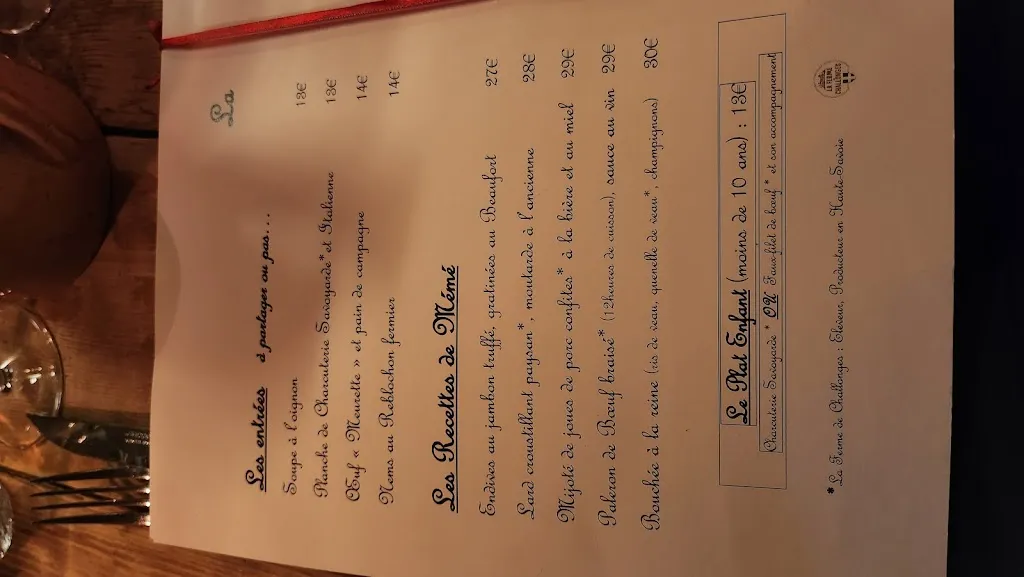 La
Les entrées à partager ou pas...
Soupe à l'oignon 13€
Planche de Charcuterie Savoyarde* et Italienne 13€
Œuf « Meurette » et pain de campagne 14€
Nems au Reblochon fermier 14€
Les Recettes de Mémé
Endives au jambon truffé, gratinées au Beaufort 27€
Lard croustillant paysan*, moutarde à l'ancienne 28€
Mijoté de joues de porc confites* à la bière et au miel 29€
Paleron de Bœuf braisé* (12heures de cuisson), sauce au vin 29€
Bouchée à la reine (ris de veau, quenelle de veau*, champignons) 30€
Le Plat Enfant (moins de 10 ans) : 13€
Charcuterie Savoyarde * OU Faux-filet de bœuf * et son accompagnement
* La Ferme de Challonges : Eleveur, Producteur en Haute-Savoie
LA FERME
CHALLONGES